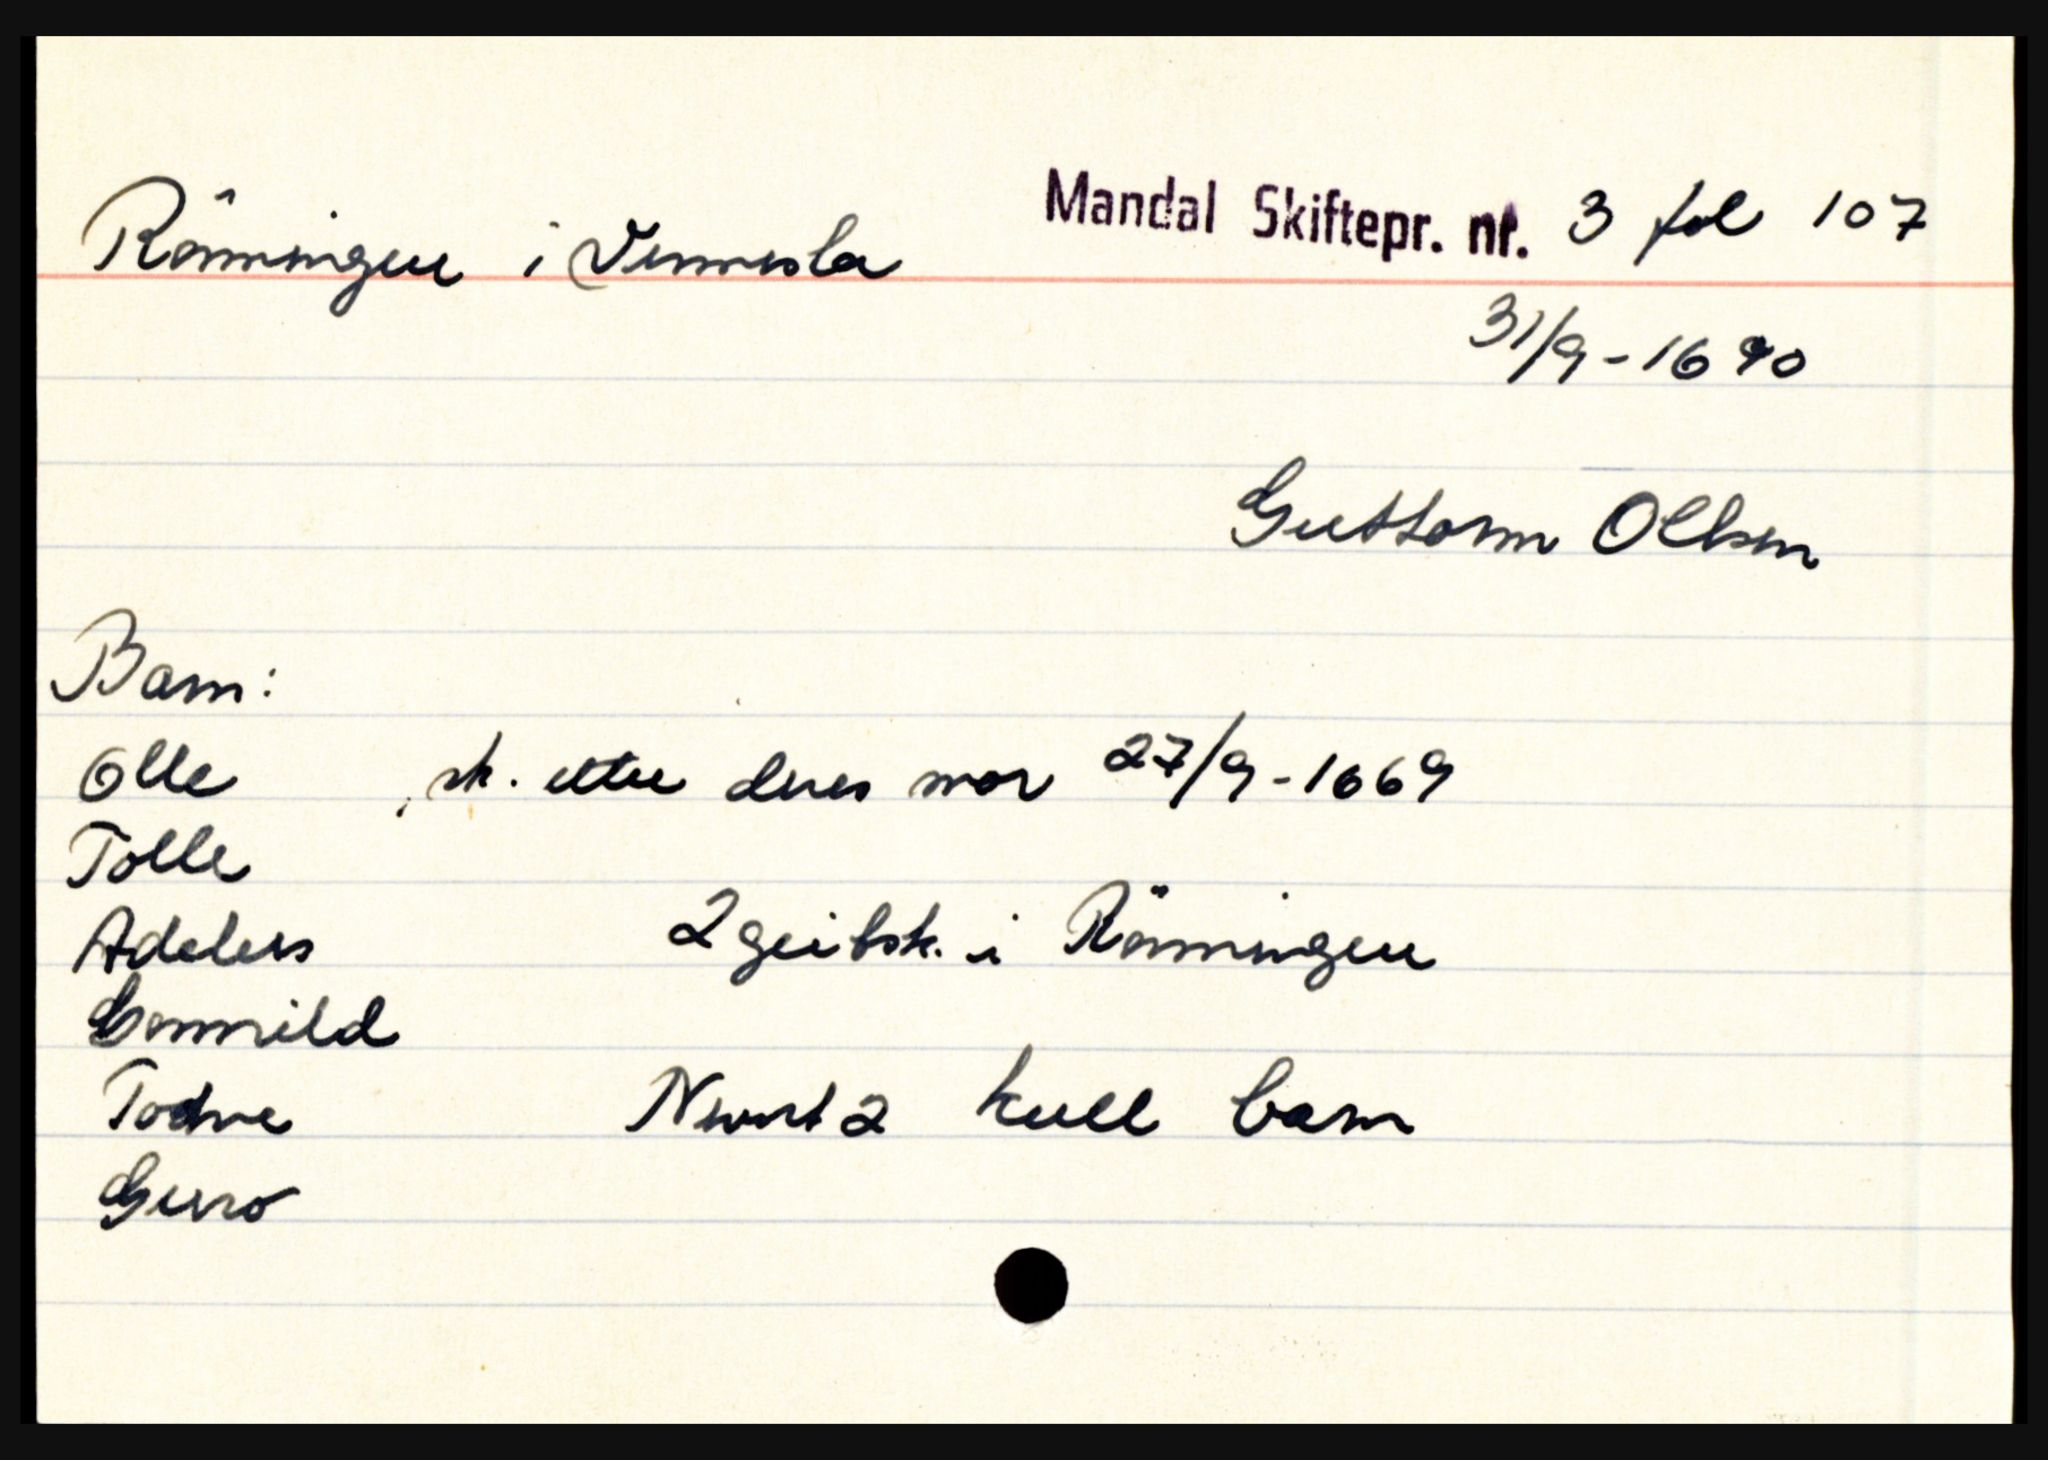 Rönningen i Vennesla
Mandal Skiftepr. nr. 3 fol 107
31/9-1690
Guttorm Olsen
Barn:
Olle , sk. etter deres mor 27/9-1669
Tolle
Adelers
2 geibsk. i Rönningen
Gonnild
Todne
Nevnt 2 kull barn
Guro